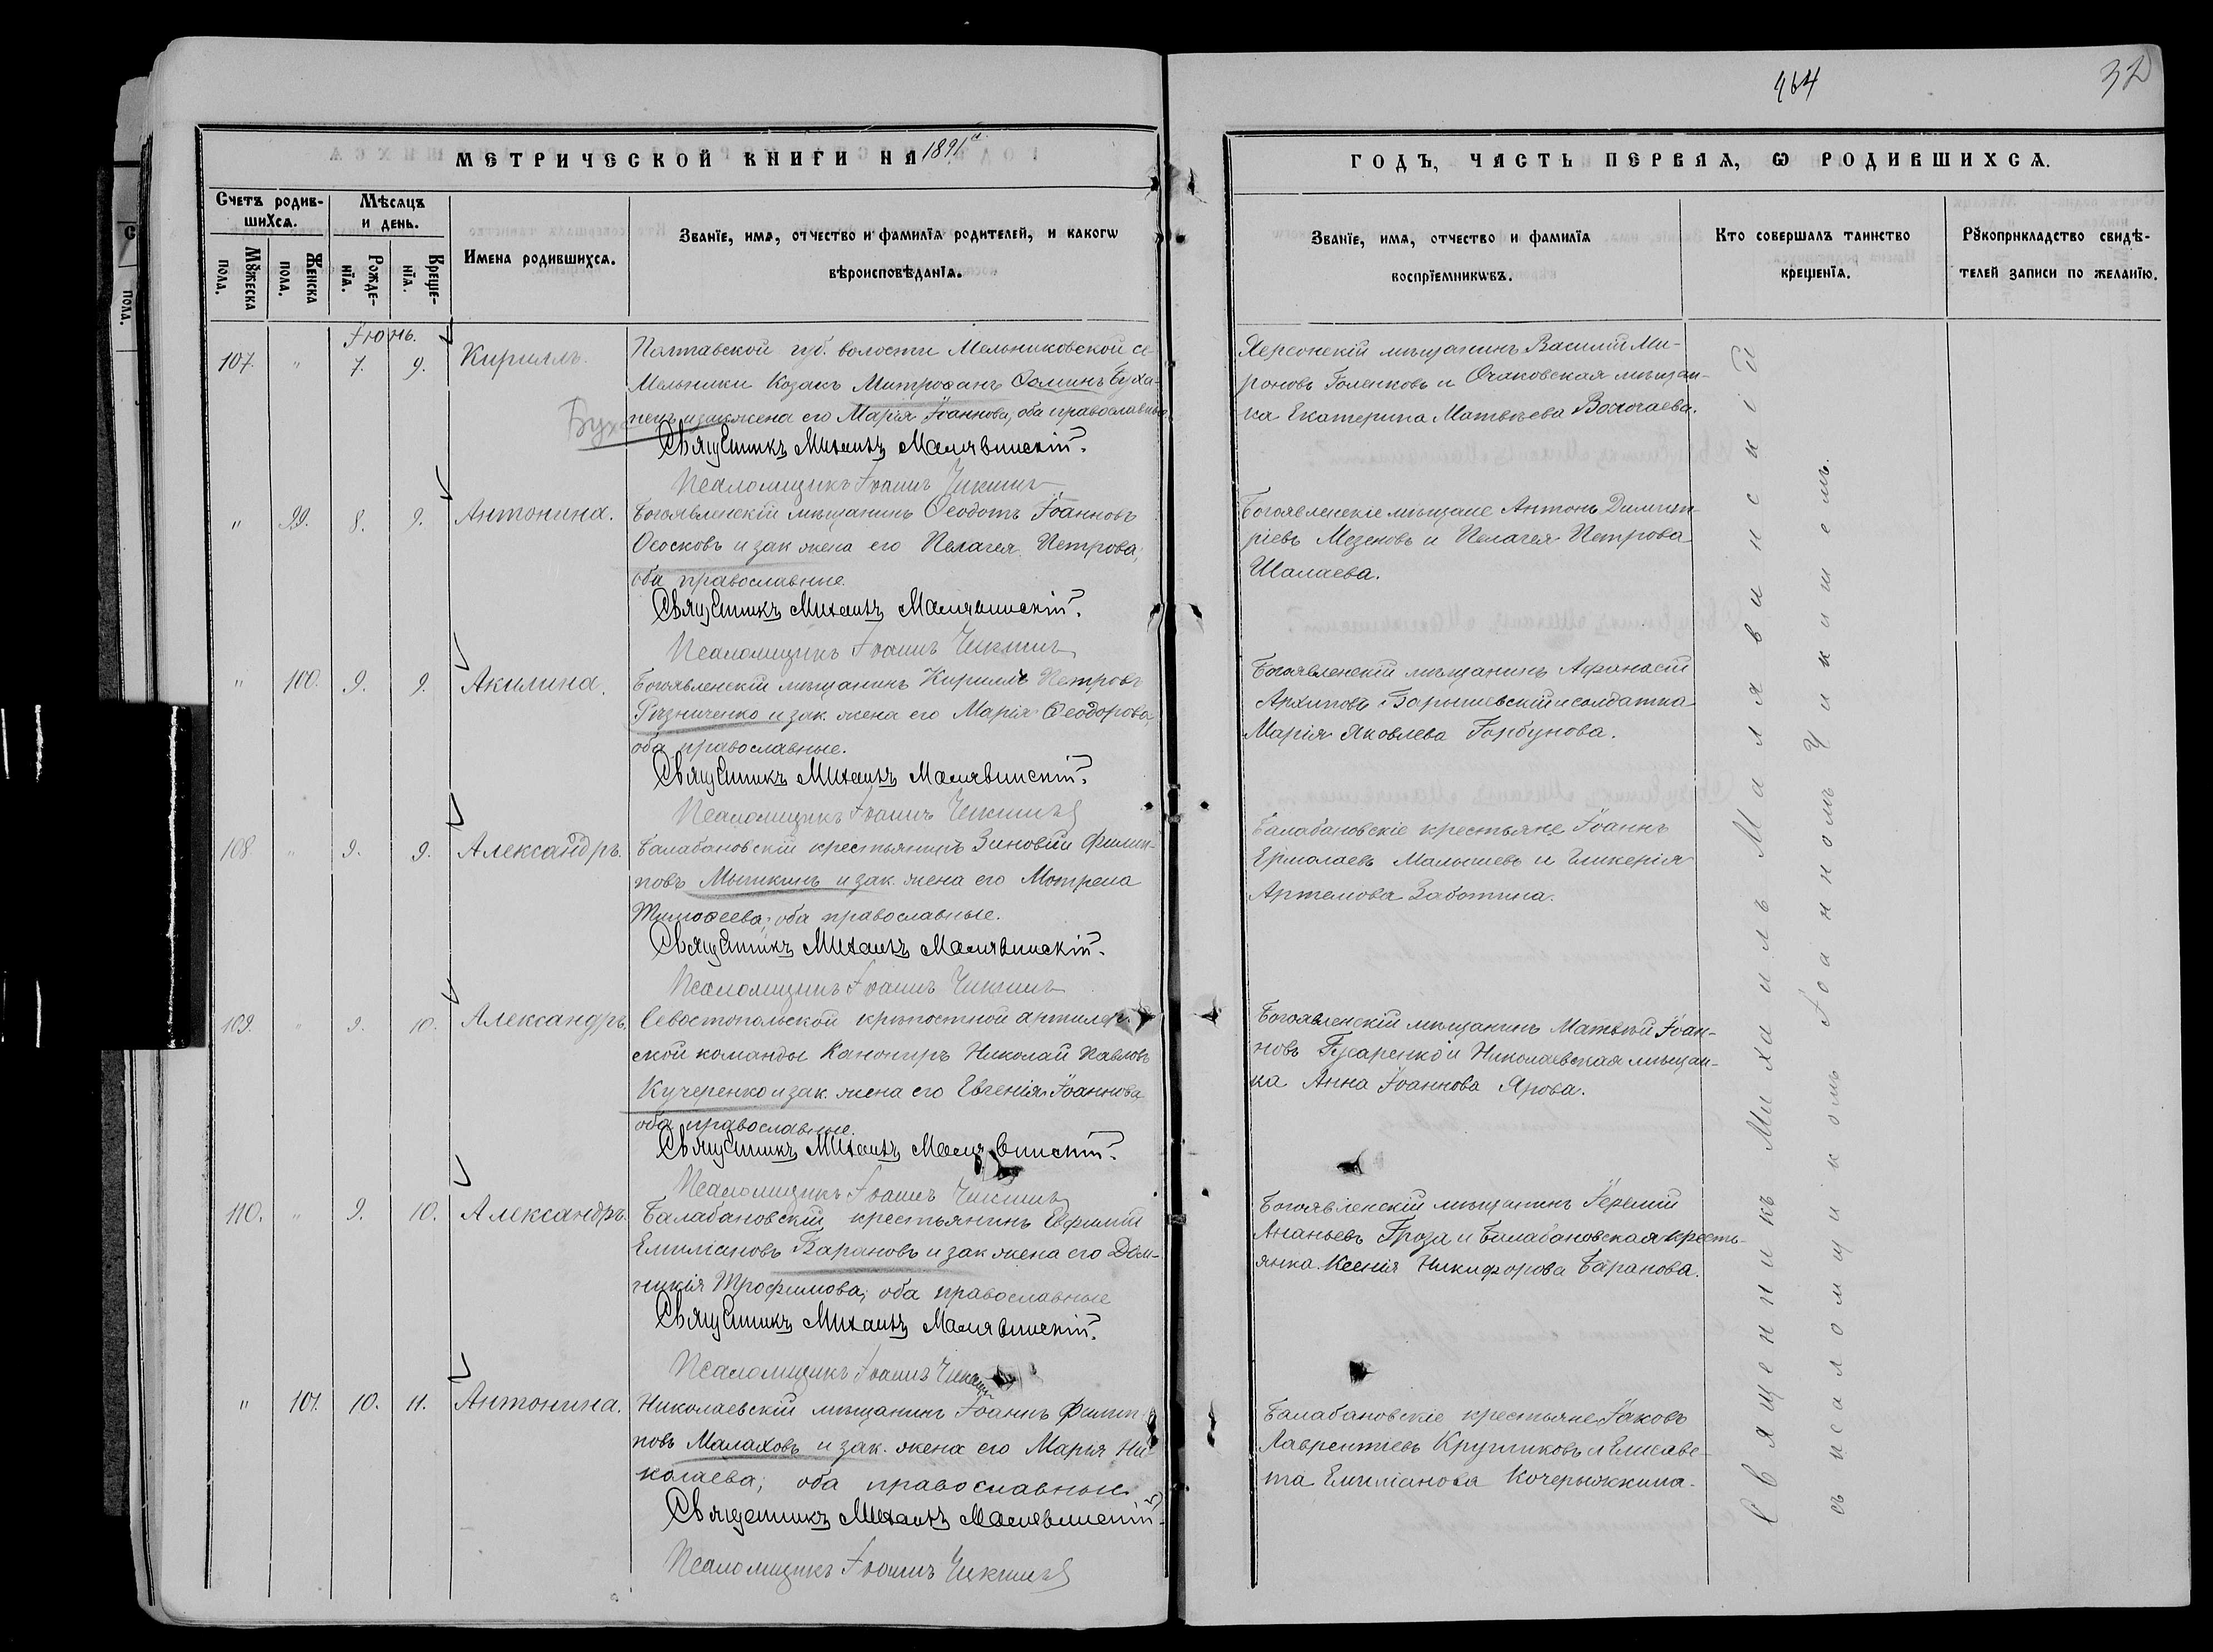 464
32
МЕТРИЧЕСКОЙ КНИГИ НА 1891й
ГОДЪ, ЧАСТЬ ПЕРВАѦ, Ѡ РОДИВШИХСѦ.
Счетъ родив-
шихсѧ.
Мѣсѧцъ
и день.
Мꙋжеска
пола.
Женска
пола.
Рожде-
нїѧ.
Креще-
нїѧ.
Имена родившихсѧ.
Званїе, имѧ, отчество и фамилїѧ родителей, и какогѡ
вѣроисповѣданїѧ.
Званїе, имѧ, отчество и фамилїѧ
воспрїемникѡвъ.
Кто совершалъ таинство
крещенїѧ.
Рꙋкоприкладство свидѣ-
телей записи по желанїю.
Іюнь.
107. " 7. 9. Кириллъ.
Полтавской губ. волости Мельниковской се
Мельники Козакъ Митрофанъ Ѳоминъ Буха-
нецъ и зак жена его Марія Іоаннова, оба православные
Священникъ Михаилъ Малявинскій.
Псаломщикъ Іоаннъ Чикинъ
Херсонскій мѣщанинъ Василій Ми-
роновъ Голенковъ и Очаковская мѣщан-
ка Екатерина Матвѣева
" 99. 8. 9. Антонина.
Богоявленскій мѣщанинъ Ѳеодотъ Іоанновъ
Ососковъ и зак жена его Пелагея Петрова,
оба православные.
Священникъ Михаилъ Малявинскій.
Псаломщикъ Іоаннъ Чикинъ
Богоявленскіе мѣщане Антонъ Димит-
ріевъ Мезеновъ и Пелагея Петрова
Шалаева.
" 100. 9. 9. Акилина.
Богоявленскій мѣщанинъ Кириллъ Петровъ
Рѣзниченко и зак. жена его Марія Ѳеодорова,
оба православные.
Священникъ Михаилъ Малявинскій.
Псаломщикъ Іоаннъ Чикинъ
Богоявленскій мѣщанинъ Афанасій
Архиповъ Барышевскій и солдатка
Марія Яковлева Горбунова.
108 " 9. 9. Александръ.
Балабановскій крестьянинъ Зиновій Филип-
повъ Мышкинъ и зак. жена его Мотрена
Тимоѳеева; оба православные.
Священникъ Михаилъ Малявинскій.
Псаломщикъ Іоаннъ Чикинъ
Балабановскіе крестьяне Іоаннъ
Ермолаевъ Малышевъ и Гликерія
Артемова Заботина.
109. " 9. 10. Александръ.
Севостопольской крѣпостной артилер
ской команды Канониръ Николай Павловъ
Кучеренко и зак. жена его Евгенія Іоаннова
оба православные.
Священникъ Михаилъ Малявинскій.
Псаломщикъ Іоаннъ Чикинъ
Богоявленскій мѣщанинъ Матвѣй Іоан-
новъ Гусаренко и Николаевская мѣщан-
ка Анна Іоаннова Ярова.
110. " 9. 10. Александръ.
Балабановскій крестьянинъ Евфимій
Емиліановъ Барановъ и зак жена его Дом-
никія Трофимова; оба православные
Священникъ Михаилъ Малявинскій.
Псаломщикъ Іоаннъ Чикинъ
Богоявленскій мѣщанинъ Іеремій
Ананьевъ Гроза и Балабановская кресть-
янка Ксенія Никифорова Баранова.
" 101. 10. 11. Антонина.
Николаевскій мѣщанинъ Іоаннъ Филип-
повъ Малаховъ и зак. жена его Марія Ни-
колаева; оба православные.
Священникъ Михаилъ Малявинскій
Псаломщикъ Іоаннъ Чикинъ
Балабановскіе крестьяне Іаковъ
Лаврентіевъ Кругликовъ и Елисаве-
та Емиліанова Кочерыжкина.
Священникъ Михаилъ Малявинскій
съ псаломщикомъ Іоанномъ Чикинымъ.